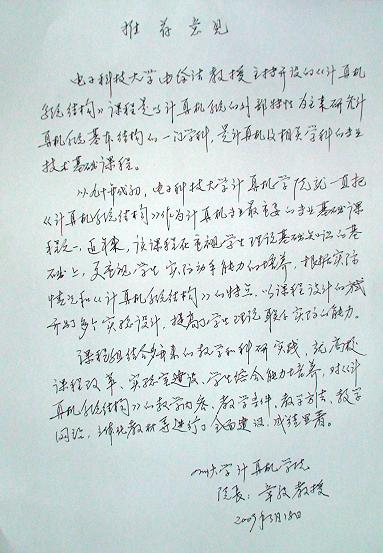 推荐意见
电子科技大学由徐洁教授主持开设的《计算机
系统结构》课程是以计算机系统的外部特性为主来研究计
算机系统基本结构的一门学科，是计算机及相关学科的专业
技术基础课程。
从九十年代初，电子科技大学计算机学院就一直把
《计算机系统结构》作为计算机专业最重要的专业基础课
程之一，近年来，该课程在重视学生理论基础知识的基
础上，更重视学生实际动手能力的培养，根据实际
情况和《计算机系统结构》的特点，以课程设计的
开的多个实验设计，提高了学生理论联系实际的能力。
课程组结合多年来的教学和科研实践，就高校
课程改革、实验室建设、学生综合能力培养，对《计
算机系统结构》的教学内容、教学条件、教学方法、教学
网站、立体化教材等进行了全面建设，成绩显著。
四川大学计算机学院
院长：章毅教授
2009年3月18日